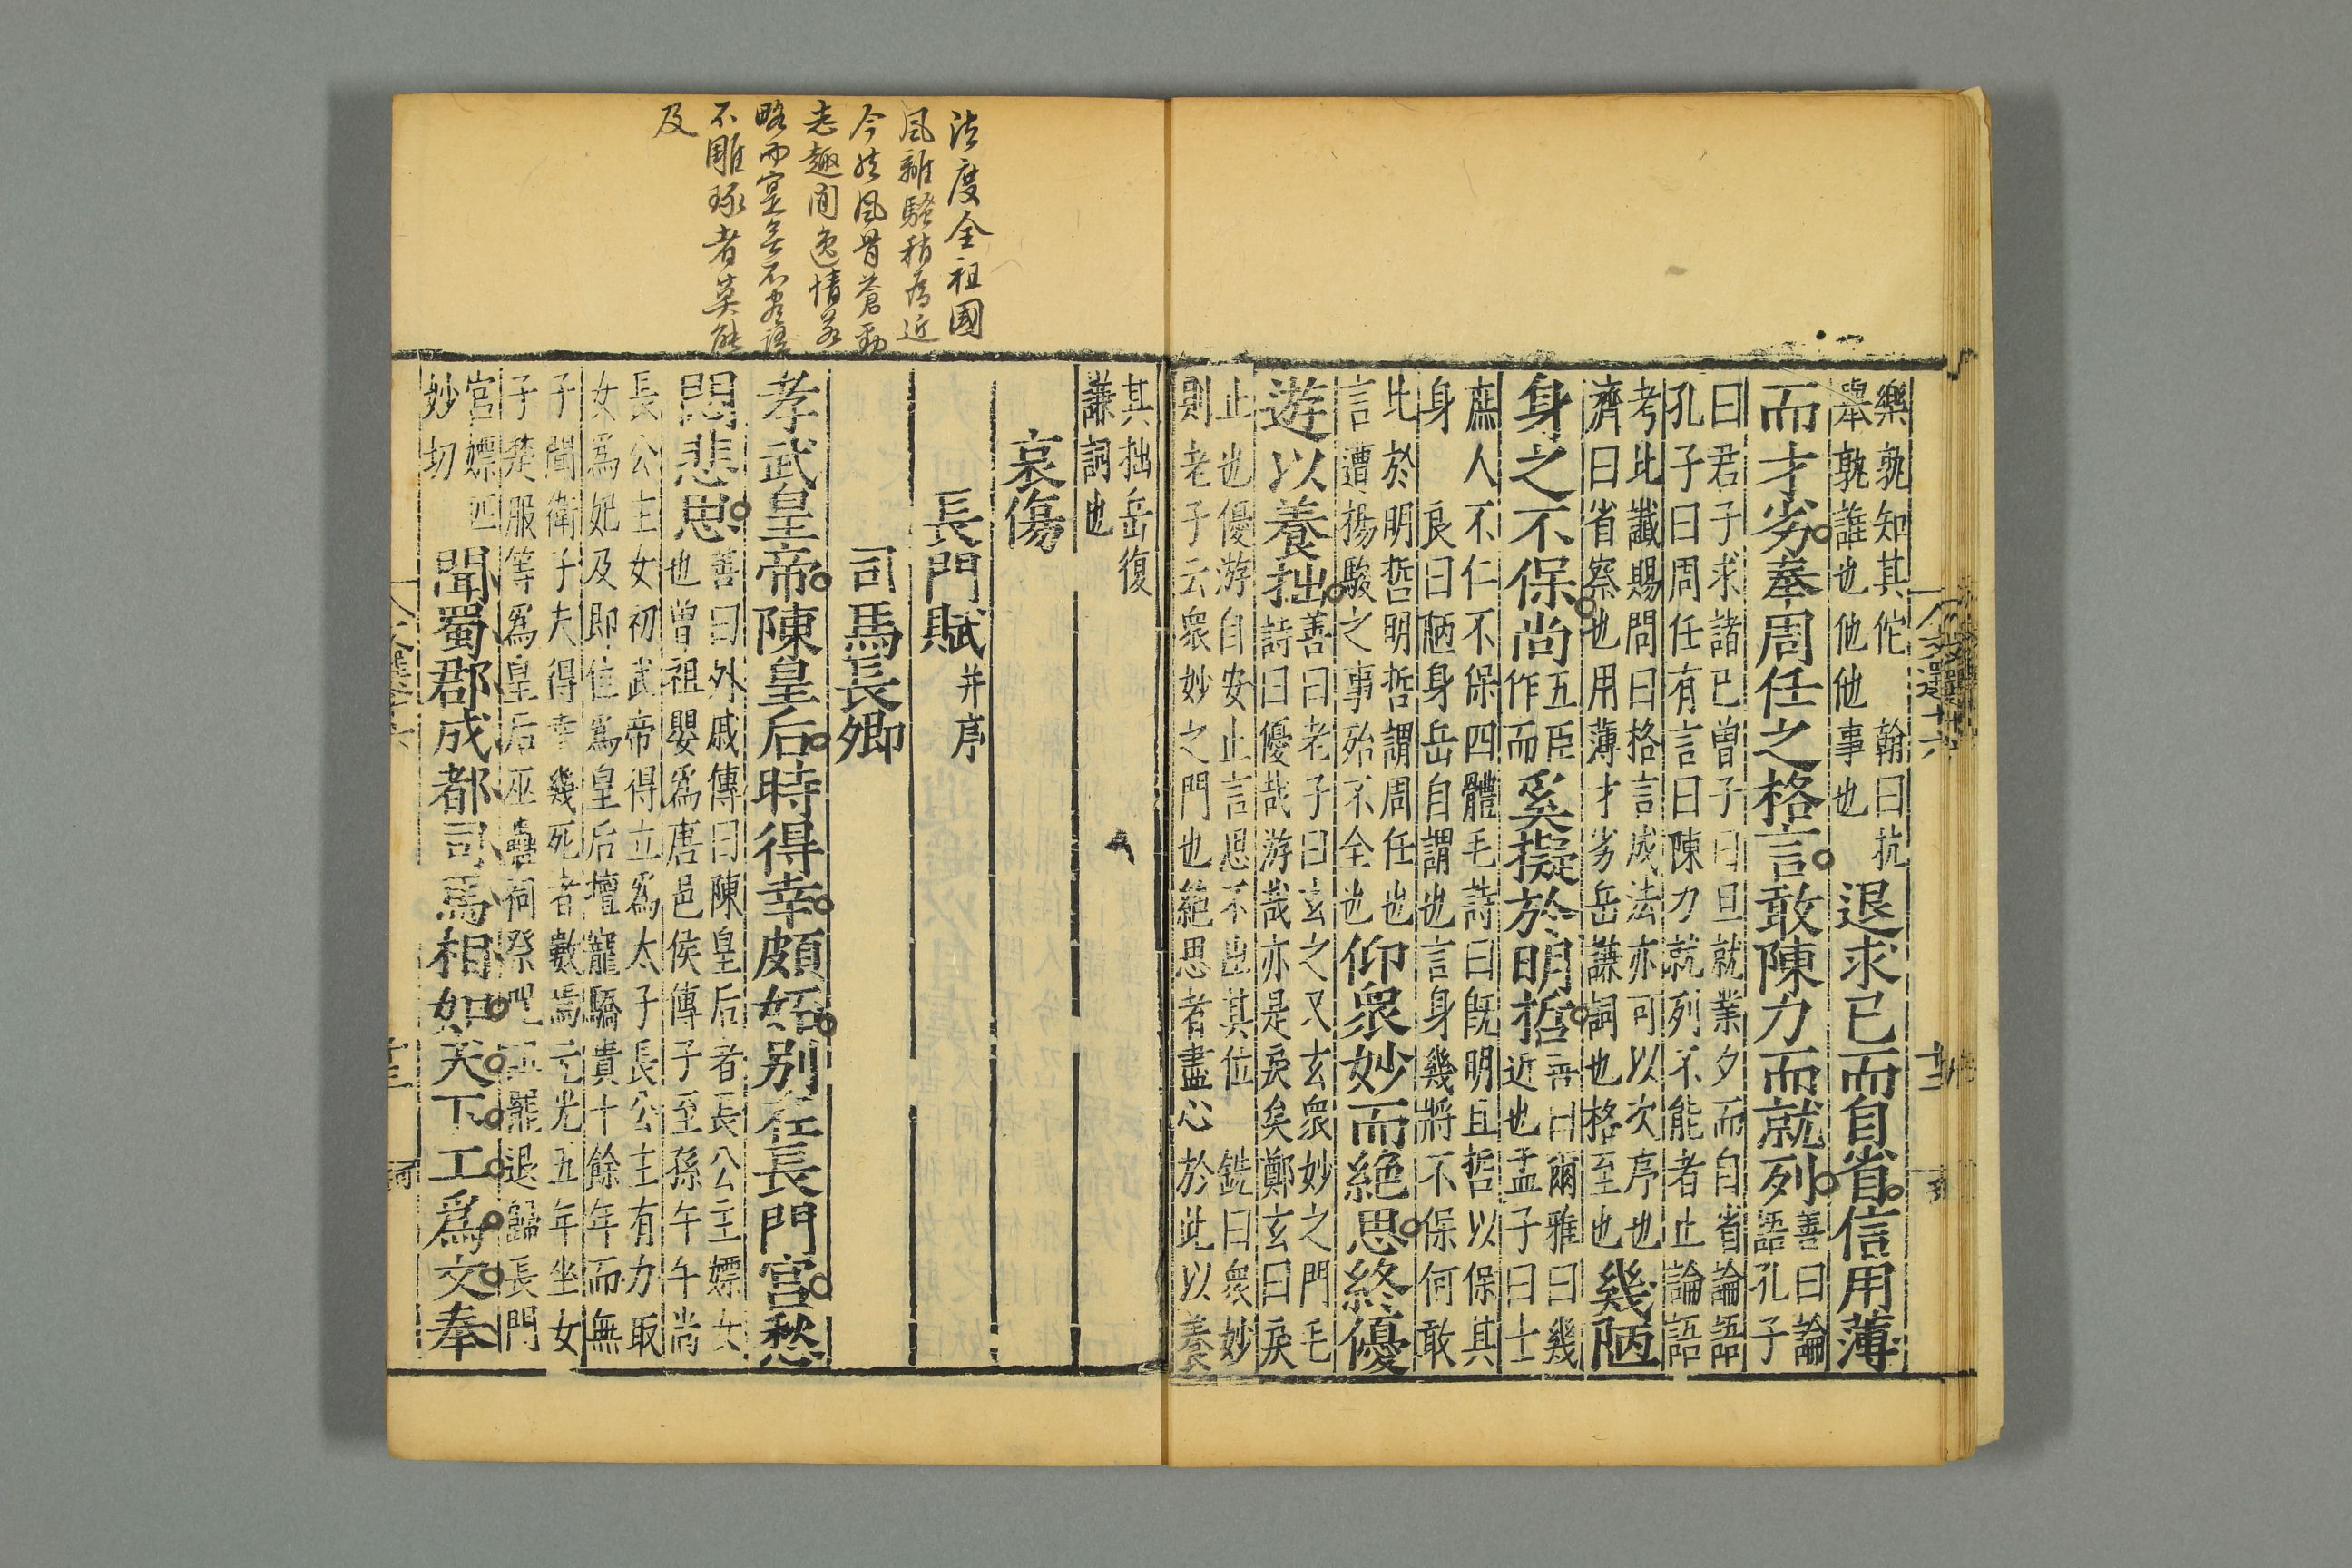 樂孰知其佗　翰曰抗
舉孰誰也他他事也
退求已而自省信用薄
而才劣奉周任之格言敢陳力而就列
善曰論
語孔子
曰君子求諸已曾子曰旦就業夕而自省論語
孔子曰周任有言曰陳力就列不能者止論語
考比讖賜問曰格言成法亦可以次序也
濟曰省察也用薄才劣岳謙詞也格至也
幾陋
身之不保尚
五臣
作而
奚擬於明哲
善曰爾雅曰幾
近也孟子曰士
庶人不仁不保四體毛詩曰旣明且哲以保其
身　良曰陋身岳自謂也言身幾將不保何敢
比於明哲明哲謂周任也
言遭揚駿之事殆不全也
仰衆妙而絶思終優
遊以養拙
善曰老子曰玄之又玄衆妙之門毛
詩曰優哉游哉亦是戾矣鄭玄曰戾
止也優游自安止言思不出其位　銑曰衆妙
則老子云衆妙之門也絶思者盡心於此以養
其拙岳復
謙詞也
哀傷
長門賦并序
司馬長卿
孝武皇帝陳皇后時得幸頗妬别在長門宮愁
悶悲思
善曰外戚傳曰陳皇后者長公主嫖女
也曾祖嬰爲唐邑侯傳子至孫午午尚
長公主女初武帝得立爲太子長公主有力取
女爲妃及即位爲皇后擅寵驕貴十餘年而無
子聞衛子夫得幸幾死者數焉元光五年坐女
子楚服等爲皇后巫蠱祠祭呪詛罷退歸長門
宮嫖匹
妙切
聞蜀郡成都司馬相如天下工爲文奉
法度全祖國
風離騷稍爲近
今然風骨蒼勁
志趣閒逸情若
略而寔無不盡語
不雕琢者莫能
及
文選廿六